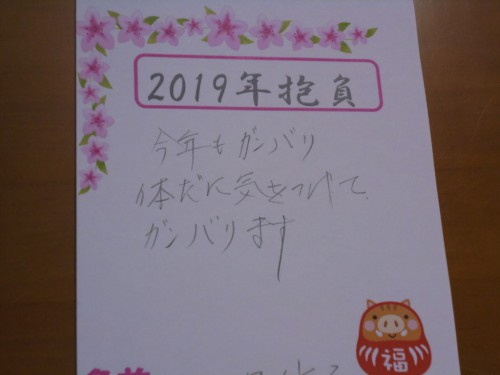 2019年抱負
今年もガンバリ
体だに気をつけて
ガンバリます
福